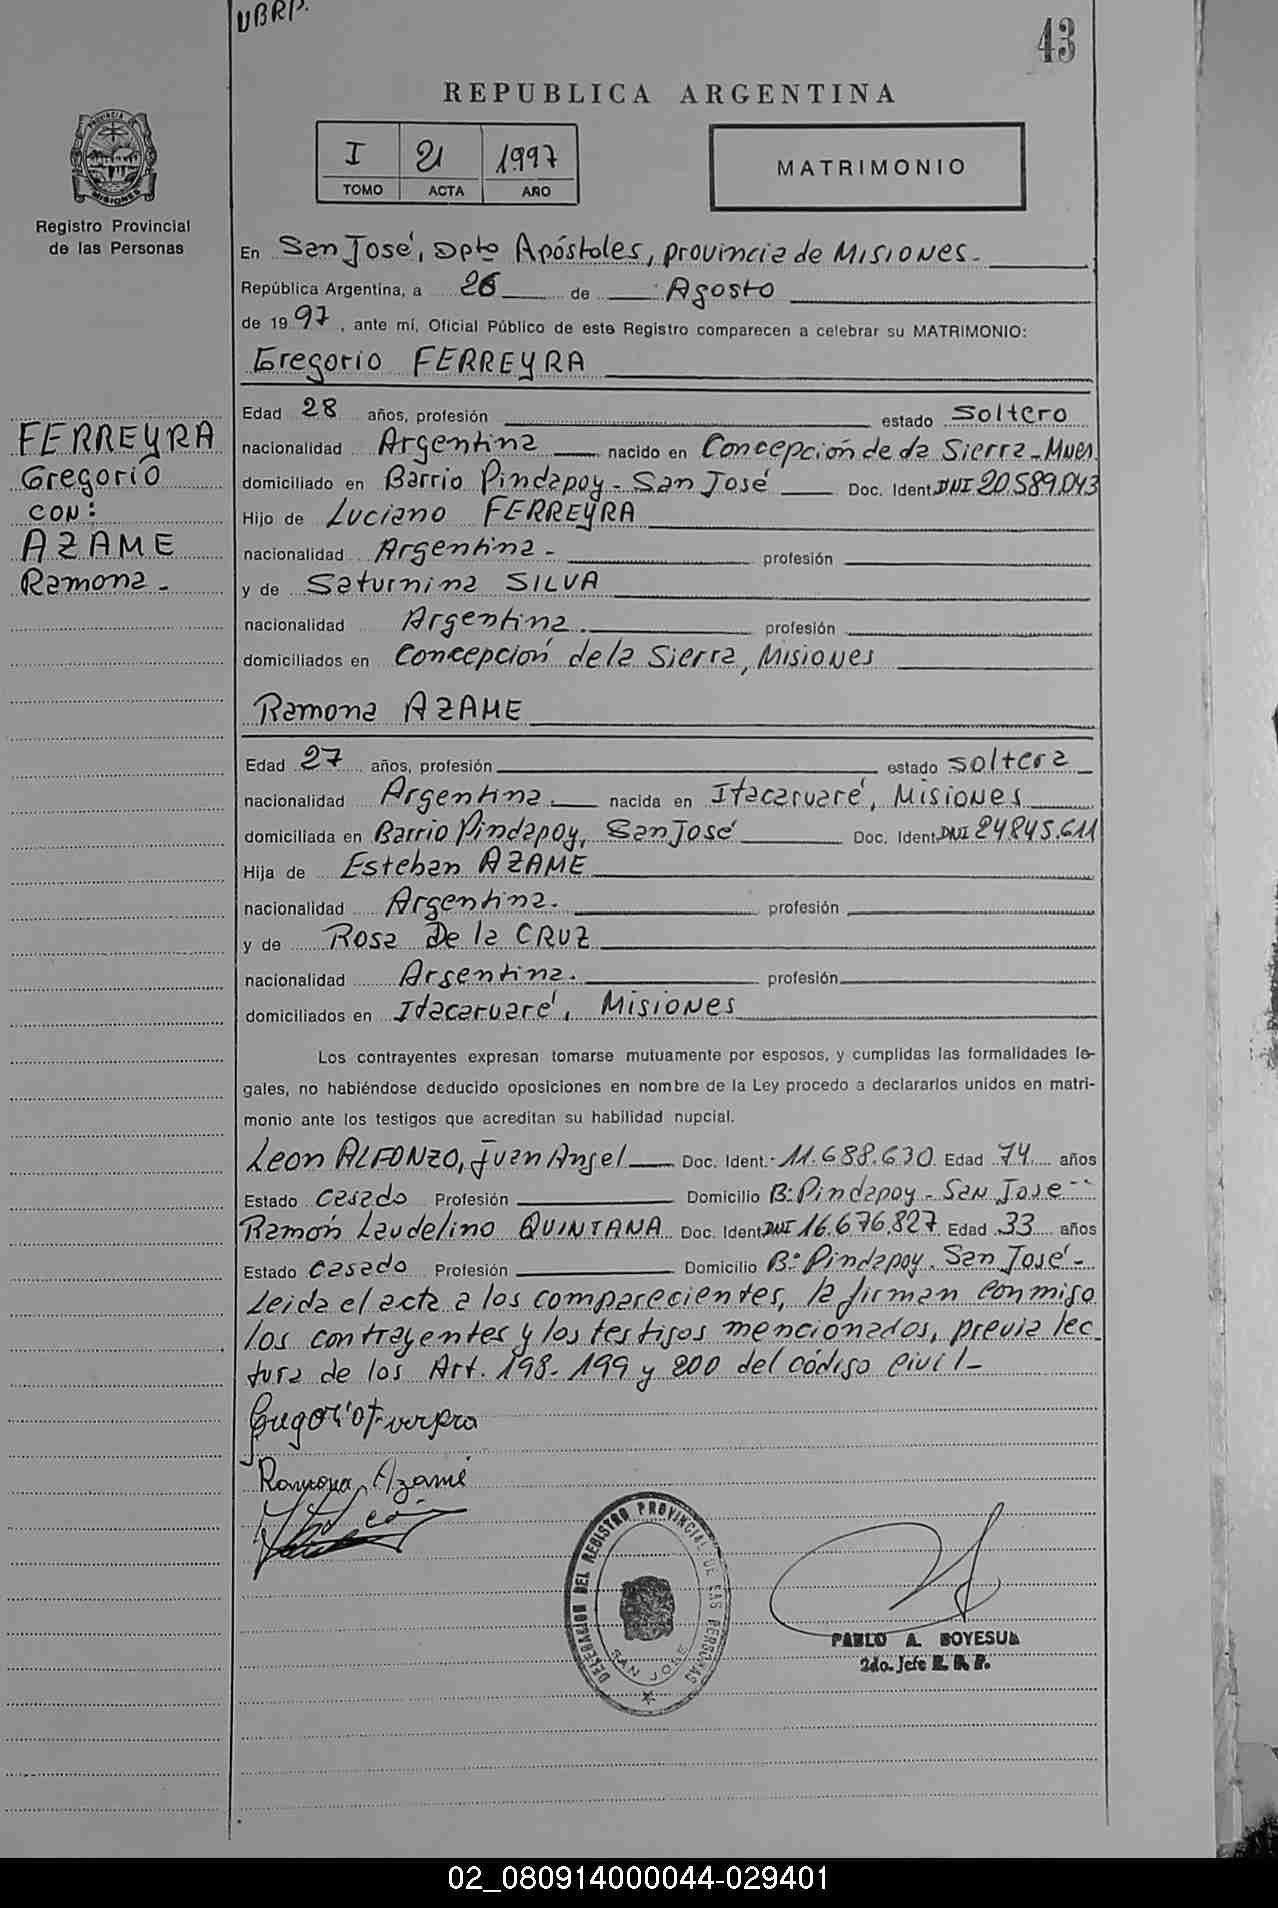 UBRP.
43
REPUBLICA ARGENTINA
I 21 1997
TOMO ACTA AÑO
MATRIMONIO
PROVINCIA DE MISIONES
Registro Provincial
de las Personas
En San José, Dpto Apóstoles, provincia de Misiones.
República Argentina, a 26 de Agosto
de 1997, ante mí, Oficial Público de este Registro comparecen a celebrar su MATRIMONIO:
Gregorio FERREYRA
Edad 28 años, profesión estado Soltero
nacionalidad Argentina nacido en Concepción de da Sierra-Mnes.
domiciliado en Barrio Pindapoy - San José Doc. Ident. DNI 20.589.043
Hijo de Luciano FERREYRA
nacionalidad Argentina - profesión
y de Saturnina SILVA
nacionalidad Argentina. profesión
domiciliados en Concepción de la Sierra, Misiones
FERREYRA
Gregorio
CON:
AZAME
Ramona -
Ramona AZAME
Edad 27 años, profesión estado soltera
nacionalidad Argentina. nacida en Itacaruaré, Misiones
domiciliada en Barrio Pindapoy, San José Doc. Ident. DNI 24.845.611
Hija de Esteban AZAME
nacionalidad Argentina. profesión
y de Rosa De la CRUZ
nacionalidad Argentina. profesión
domiciliados en Itacaruaré, Misiones
Los contrayentes expresan tomarse mutuamente por esposos, y cumplidas las formalidades le-
gales, no habiéndose deducido oposiciones en nombre de la Ley procedo a declararlos unidos en matri-
monio ante los testigos que acreditan su habilidad nupcial.
Leon ALFONZO, Juan Angel Doc. Ident.- 11.688.630 Edad 74 años
Estado casado Profesión Domicilio B: Pindapoy - San José
Ramón Laudelino QUINTANA Doc. Ident. DNI 16.676.827 Edad 33 años
Estado casado Profesión Domicilio B: Pindapoy. San José -
Leida el acta a los comparecientes, la firman conmigo
los contrayentes y los testigos mencionados, previa lec
tura de los Art. 198-199 y 200 del código Civil-
Gregorio Ferreyra
Ramona Azame
DELEGACION DEL REGISTRO PROVINCIAL DE LAS PERSONAS
SAN JOSE
PABLO A. BOYESUK
2do. Jefe R. P. P.
02_080914000044-029401